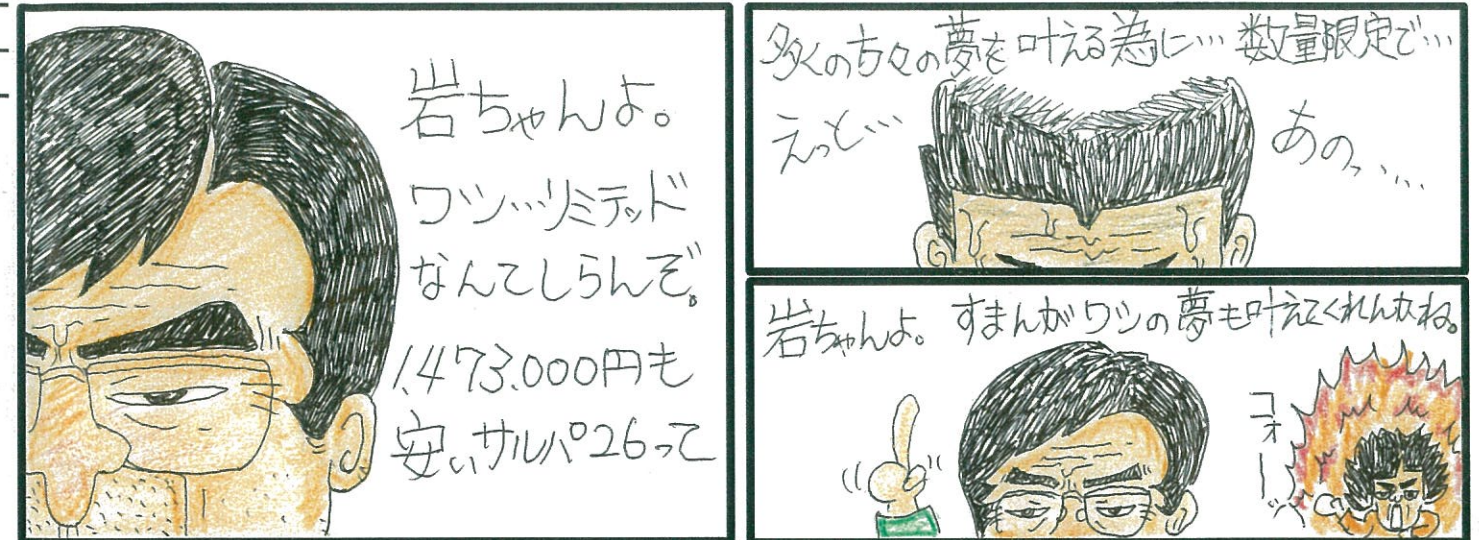 岩ちゃんよ。
ワシ…リミテッド
なんてしらんぞ。
1.473.000円も
安いサルパ26って
多くの方々の夢を叶える為に… 数量限定で…
えっと…
あの、…
岩ちゃんよ。 すまんがワシの夢も叶えてくれんかね。
コォーッ